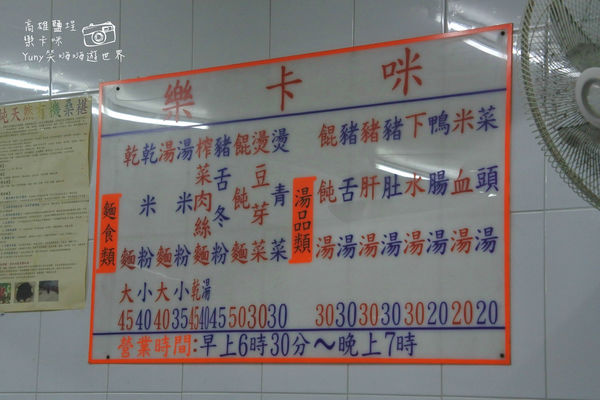 高雄鹽埕
樂卡咪
Yuny笑嗨嗨遊世界
純天然有機桑椹
樂卡咪
麵食類
乾麵 大 45
乾米粉 小 40
湯麵 大 40
湯米粉 小 35
榨菜肉絲麵 乾 45 湯 40
豬舌冬粉 45
餛飩麵 50
燙豆芽菜 30
燙青菜 30
湯品類
餛飩湯 30
豬舌湯 30
豬肝湯 30
豬肚湯 30
下水湯 30
鴨腸湯 20
米血湯 20
菜頭湯 20
營業時間:早上6時30分～晚上7時